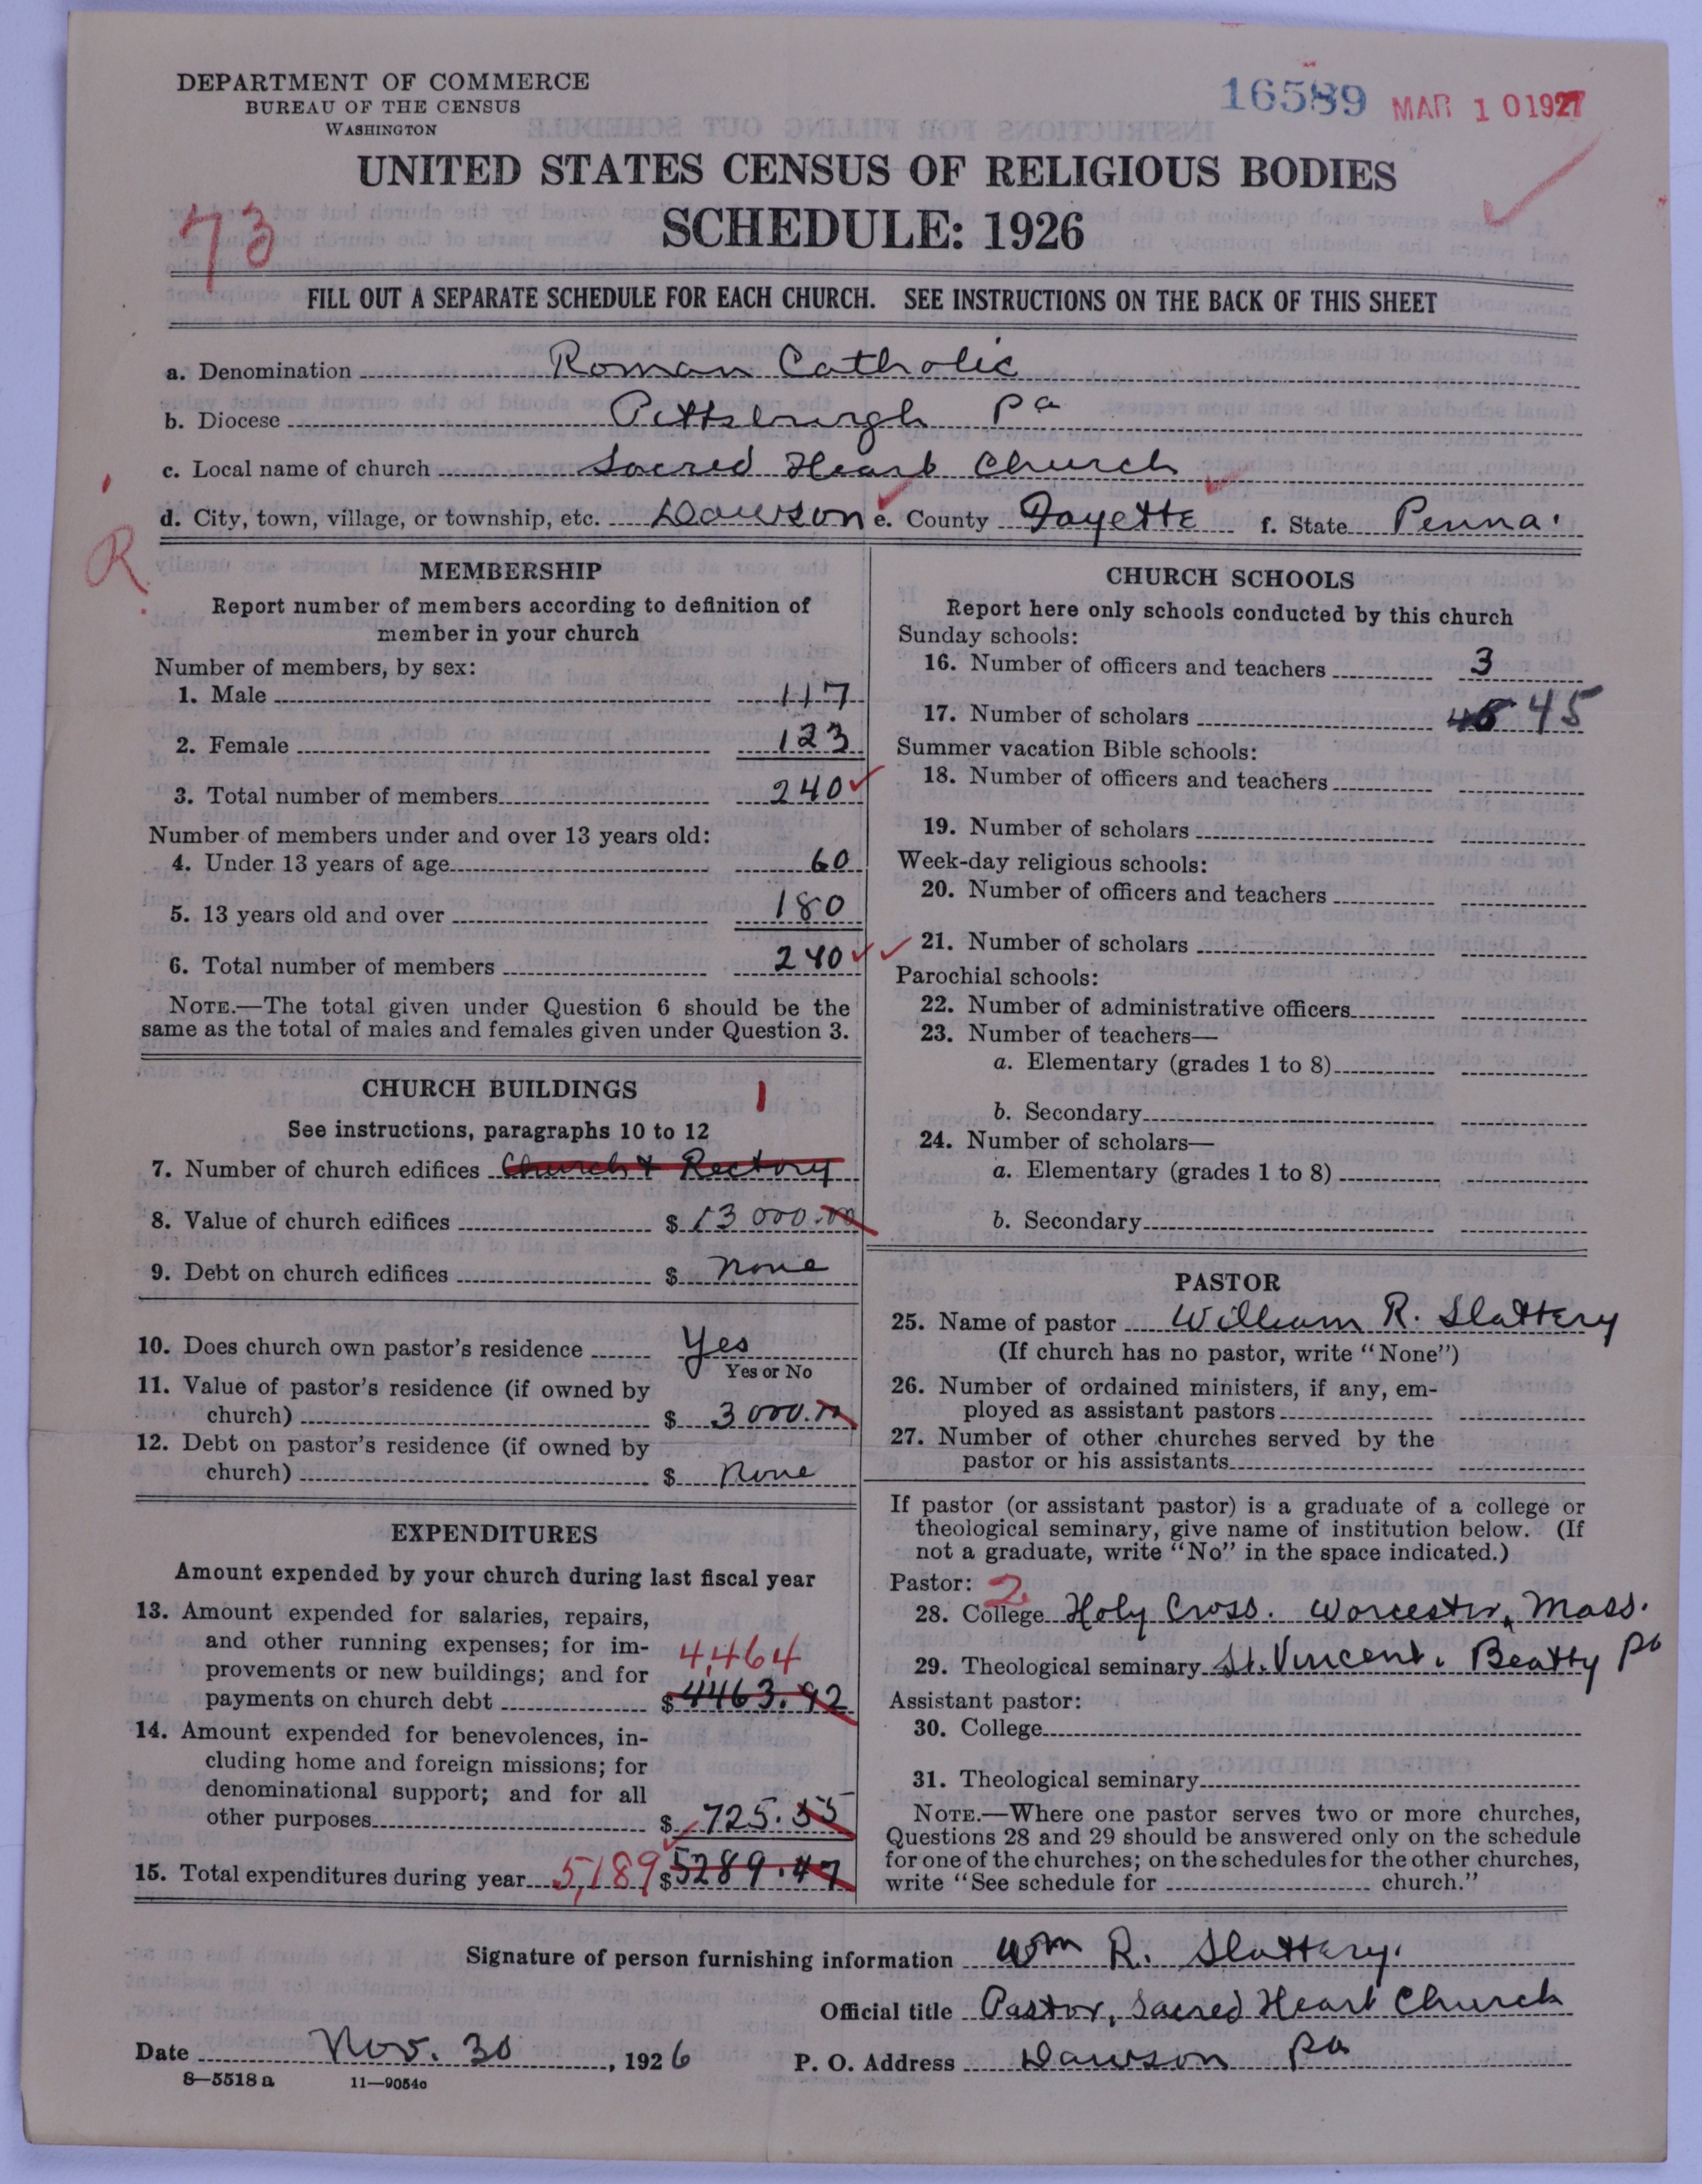 DEPARTMENT OF COMMERCE
BUREAU OF THE CENSUS
WASHINGTON
16589 MAR 10 1927
UNITED STATES CENSUS OF RELIGIOUS BODIES
SCHEDULE: 1926
73
FILL OUT A SEPARATE SCHEDULE FOR EACH CHURCH. SEE INSTRUCTIONS ON THE BACK OF THIS SHEET
a. Denomination Roman Catholic
b. Diocese Pittsburgh Pa
c. Local name of church Sacred Heart Church
d. City, town, village, or township, etc. Dawson e. County Fayette f. State Penna.
R
MEMBERSHIP
Report number of members according to definition of
member in your church
Number of members, by sex:
1. Male 117
2. Female 123
3. Total number of members 240
Number of members under and over 13 years old:
4. Under 13 years of age 60
5. 13 years old and over 180
6. Total number of members 240
NOTE.—The total given under Question 6 should be the
same as the total of males and females given under Question 3.
CHURCH BUILDINGS 1
See instructions, paragraphs 10 to 12
7. Number of church edifices Church & Rectory
8. Value of church edifices $ 13 000.00
9. Debt on church edifices $ none
10. Does church own pastor's residence Yes
Yes or No
11. Value of pastor's residence (if owned by
church) $ 3 000.00
12. Debt on pastor's residence (if owned by
church) $ None
EXPENDITURES
Amount expended by your church during last fiscal year
13. Amount expended for salaries, repairs,
and other running expenses; for im-
provements or new buildings; and for 4,464
payments on church debt $ 4463.92
14. Amount expended for benevolences, in-
cluding home and foreign missions; for
denominational support; and for all
other purposes $ 725.55
15. Total expenditures during year 5,189 $ 5289.47
CHURCH SCHOOLS
Report here only schools conducted by this church
Sunday schools:
16. Number of officers and teachers 3
17. Number of scholars 45 45
Summer vacation Bible schools:
18. Number of officers and teachers
19. Number of scholars
Week-day religious schools:
20. Number of officers and teachers
21. Number of scholars
Parochial schools:
22. Number of administrative officers
23. Number of teachers—
a. Elementary (grades 1 to 8)
b. Secondary
24. Number of scholars—
a. Elementary (grades 1 to 8)
b. Secondary
PASTOR
25. Name of pastor William R. Slattery
(If church has no pastor, write "None")
26. Number of ordained ministers, if any, em-
ployed as assistant pastors
27. Number of other churches served by the
pastor or his assistants
If pastor (or assistant pastor) is a graduate of a college or
theological seminary, give name of institution below. (If
not a graduate, write "No" in the space indicated.)
Pastor: 2
28. College Holy Cross. Worcester, Mass.
29. Theological seminary St. Vincent. Beatty Pa
Assistant pastor:
30. College
31. Theological seminary
NOTE.—Where one pastor serves two or more churches,
Questions 28 and 29 should be answered only on the schedule
for one of the churches; on the schedules for the other churches,
write "See schedule for church."
Signature of person furnishing information Wm R. Slattery.
Official title Pastor, Sacred Heart Church
Date Nov. 30, 1926 P. O. Address Dawson Pa
8—5518 a 11—9054c